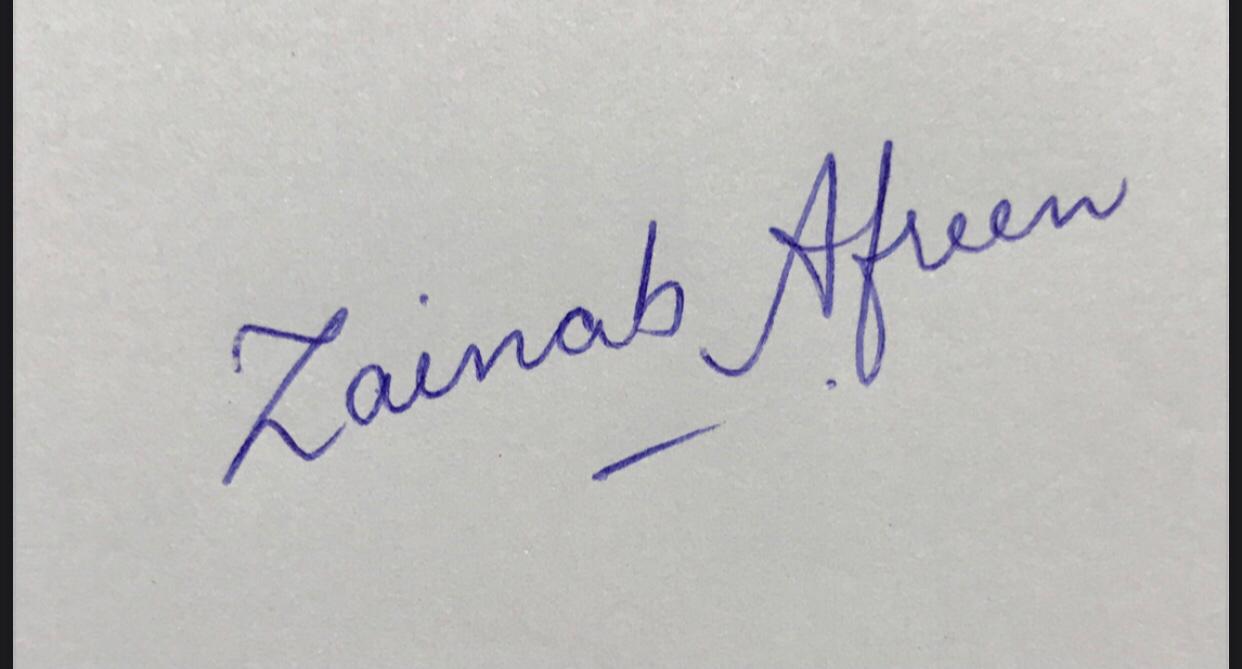 Zainab Afreen